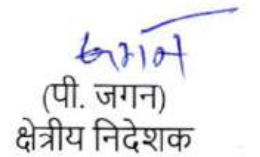 जगन
(पी. जगन)
क्षेत्रीय निदेशक